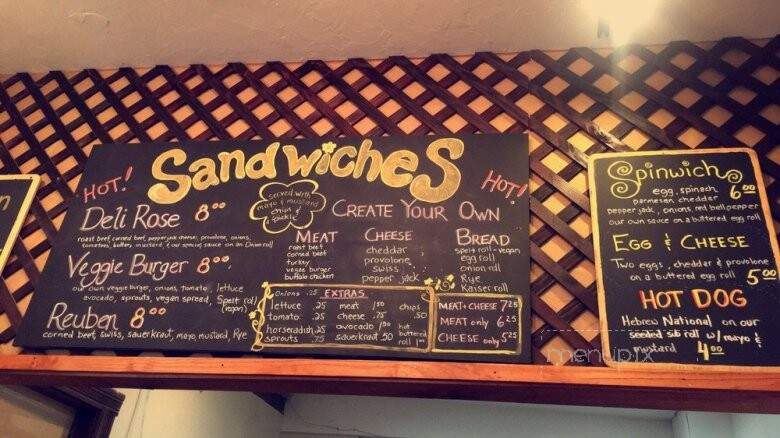 Sandwiches
HOT!
HOT!
served with
mayo & mustard
chips &
pickle
Deli Rose 8.00
roast beef, corned beef, pepper jack cheese, provolone, onions,
tomatoes, lettuce, mustard, & our special sauce on an Onion roll
Veggie Burger 8.00
our own veggie burger, onions, tomato, lettuce
avocado, sprouts, vegan spread, Spelt roll
(vegan)
Reuben 8.00
corned beef, swiss, sauerkraut, mayo, mustard, Rye
CREATE YOUR OWN
MEAT
roast beef
corned beef
turkey
veggie burger
buffalo chicken
CHEESE
cheddar
provolone
swiss
pepper jack
BREAD
spelt roll-vegan
egg roll
onion roll
Rye
Kaiser roll
EXTRAS
Onions .25
lettuce .25
tomato .25
horseradish .25
sprouts .75
meat 1.50
cheese .75
avocado 1.00
sauerkraut .50
chips .50
hot
buttered
roll 1.00
MEAT & CHEESE 7.25
MEAT only 6.25
CHEESE only 5.25
Spinwich
egg, spinach 6.00
parmesan cheddar
pepper jack, onions, red bell pepper
our own sauce on a buttered egg roll
EGG & CHEESE
Two eggs, cheddar & provolone
on a buttered egg roll 5.00
HOT DOG
Hebrew National on our
seeded sub roll w/ mayo &
mustard 4.00
menupix